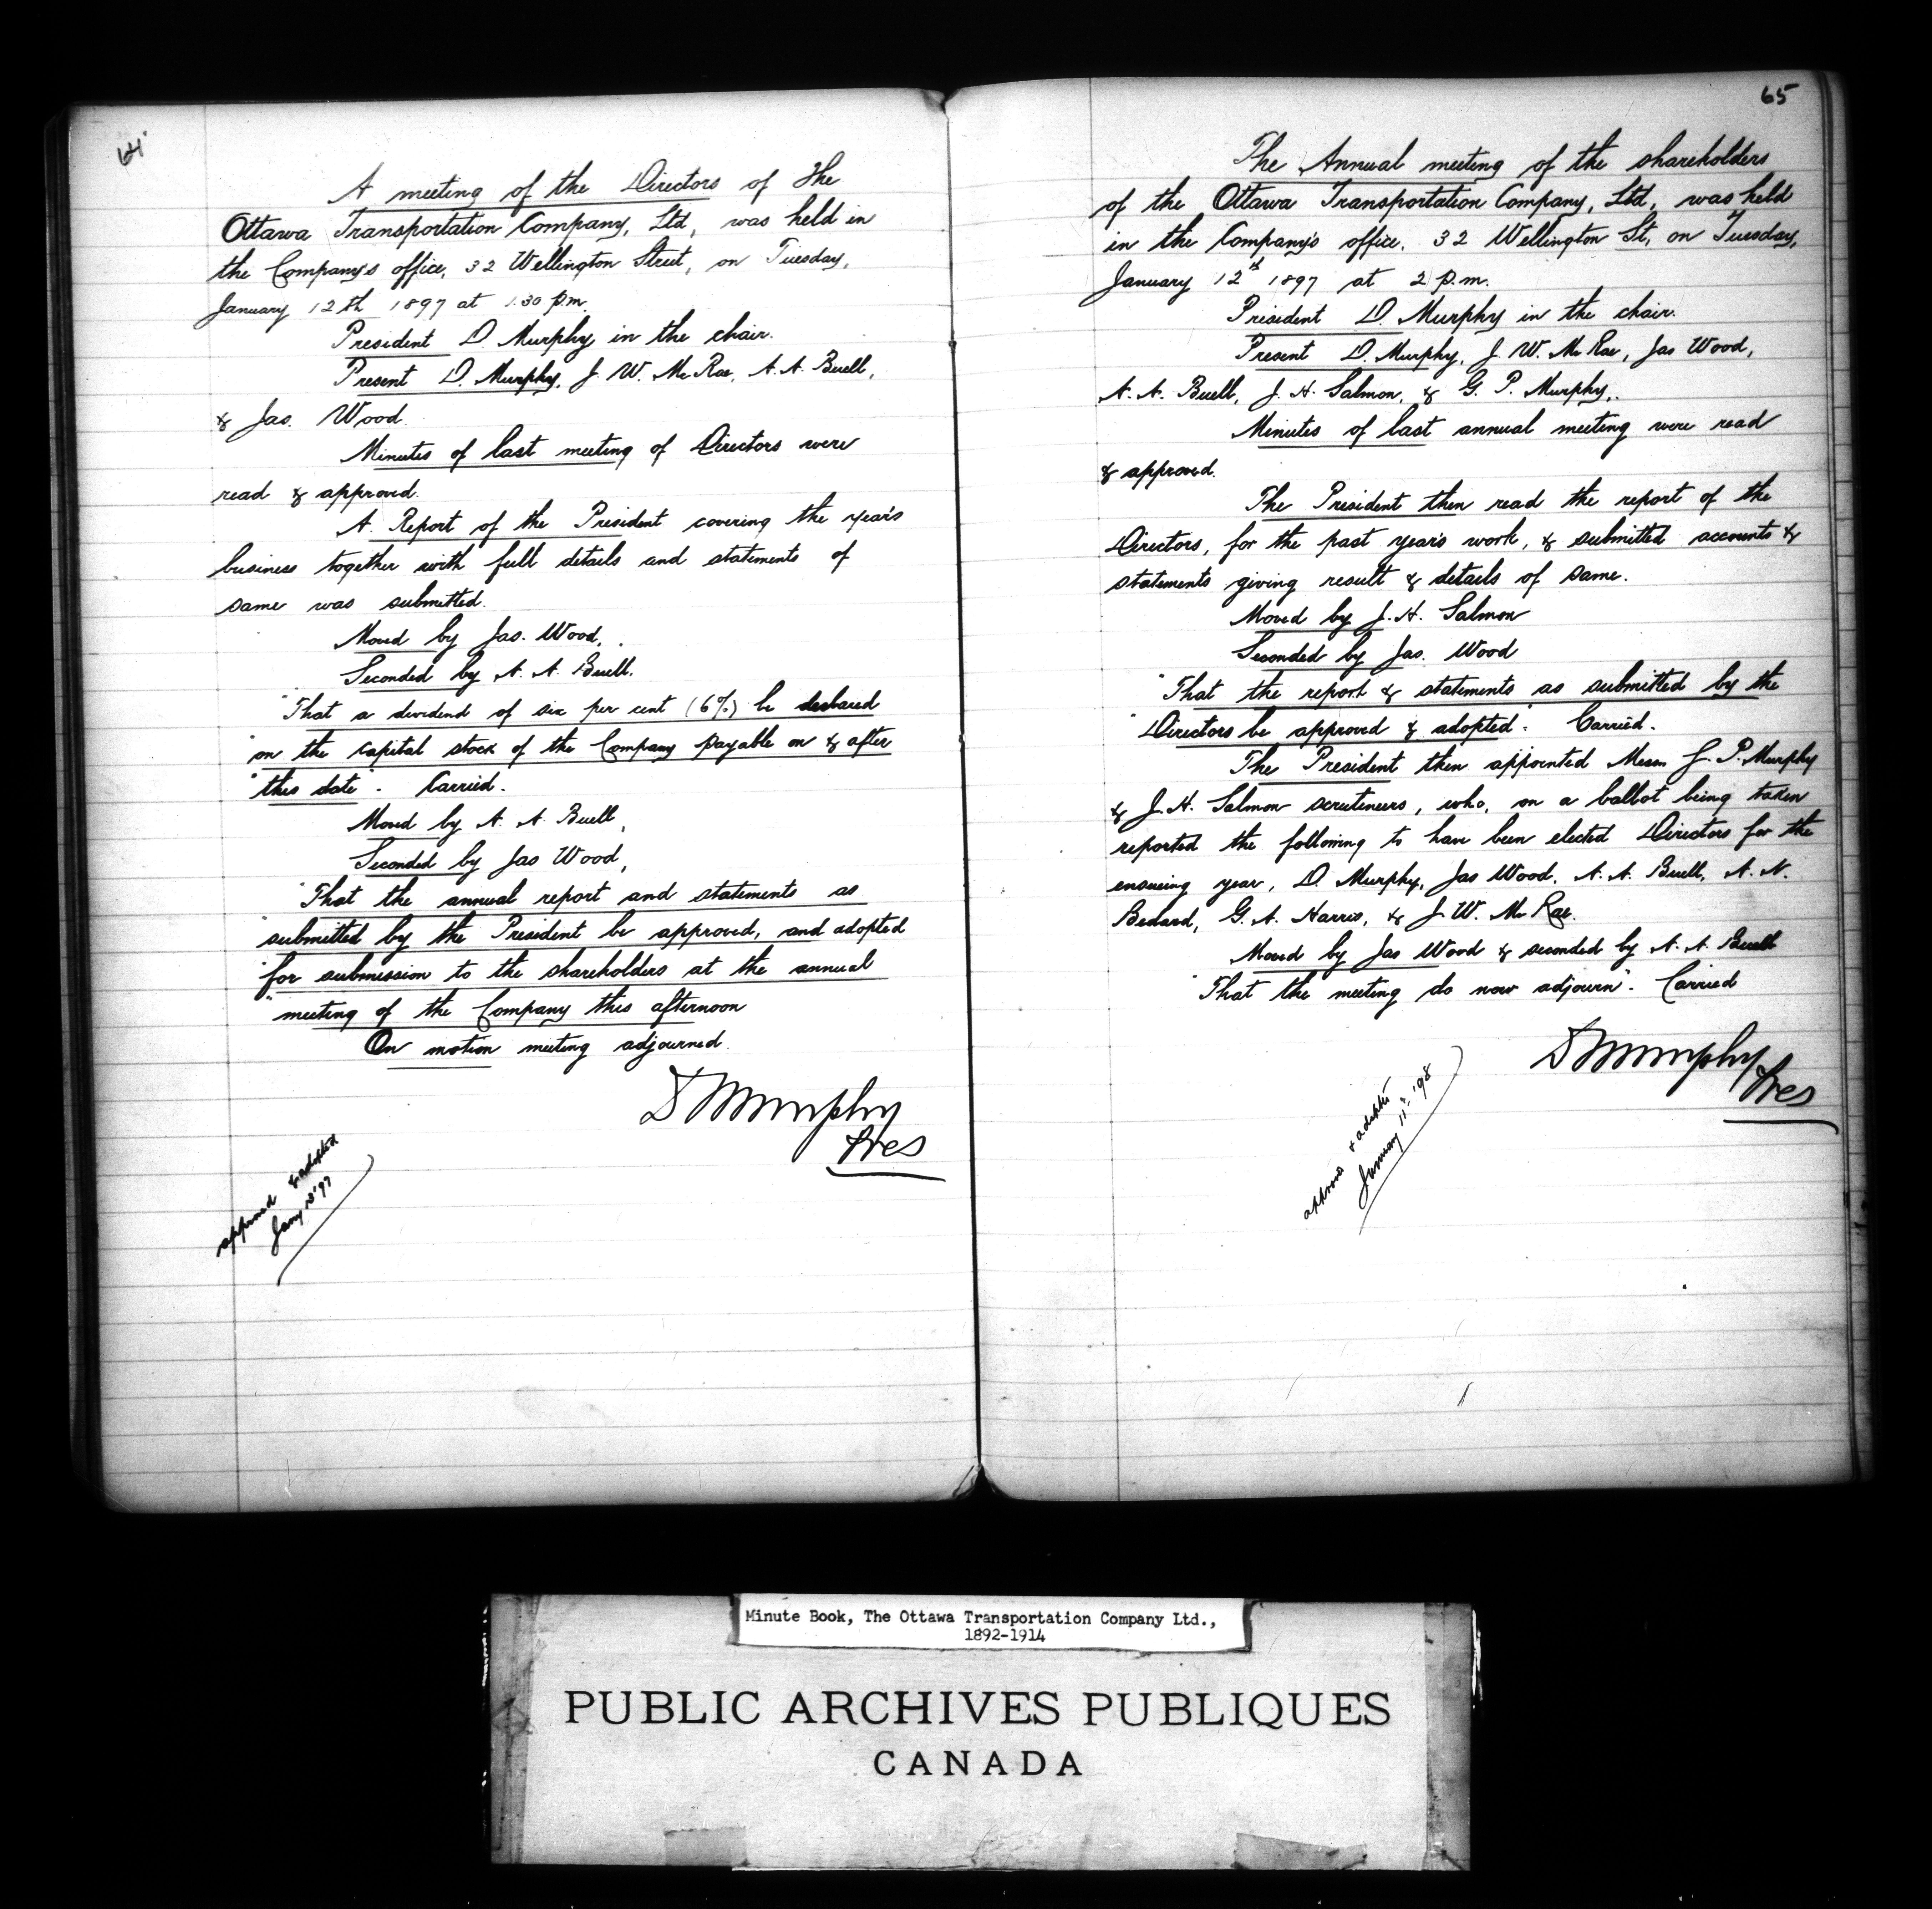 64
A meeting of the Directors of The
Ottawa Transportation Company, Ltd, was held in
the Company's office, 32 Wellington Street, on Tuesday,
January 12th 1897 at 1.30 p.m.
President D. Murphy in the chair.
Present D. Murphy, J. W. McRae, A. A. Buell,
& Jas. Wood.
Minutes of last meeting of Directors were
read & approved.
A Report of the President covering the year's
business together with full details and statements of
same was submitted.
Moved by Jas. Wood,
Seconded by A. A. Buell.
"That a dividend of six per cent (6%) be declared
"on the capital stock of the Company payable on & after
"this date". Carried.
Moved by A. A. Buell,
Seconded by Jas Wood,
"That the annual report and statements as
"submitted by the President be approved, and adopted
"for submission to the shareholders at the annual
"meeting of the Company this afternoon
On motion meeting adjourned.
D Murphy
Pres
approved & adopted
Jany 13 '97
65
The Annual meeting of the shareholders
of the Ottawa Transportation Company, Ltd, was held
in the Company's office, 32 Wellington St, on Tuesday,
January 12th 1897 at 2 p.m.
President D. Murphy in the chair.
Present D. Murphy, J. W. McRae, Jas Wood,
A. A. Buell, J. H. Salmon, & G. P. Murphy.
Minutes of last annual meeting were read
& approved.
The President then read the report of the
Directors, for the past year's work, & submitted accounts &
statements giving result & details of same.
Moved by J. H. Salmon
Seconded by Jas. Wood
"That the report & statements as submitted by the
"Directors be approved & adopted". Carried.
The President then appointed Messrs G. P. Murphy
& J. H. Salmon scruteneers, who, on a ballot being taken
reported the following to have been elected Directors for the
ensueing year, D. Murphy, Jas Wood, A. A. Buell, A. N.
Bedard, G. A. Harris, & J. W. McRae.
Moved by Jas Wood & seconded by A. A. Buell
"That the meeting do now adjourn". Carried
D Murphy
Pres
approved & adopted
January 11th '98
Minute Book, The Ottawa Transportation Company Ltd.,
1892-1914
PUBLIC ARCHIVES PUBLIQUES
CANADA